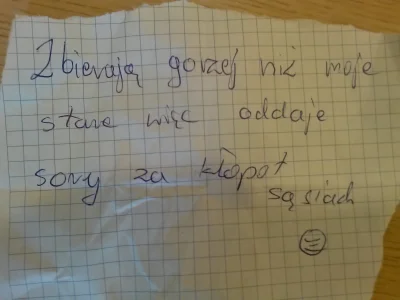 Zbierają gorzej niż moje
stare więc oddaje
sory za kłopot
sąsiad